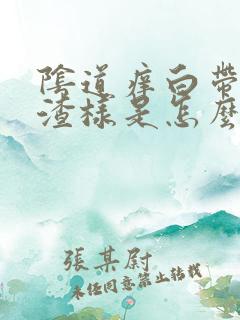 陰道痒白帶
渣樣是怎麼
張某尉
未经同意禁止转载